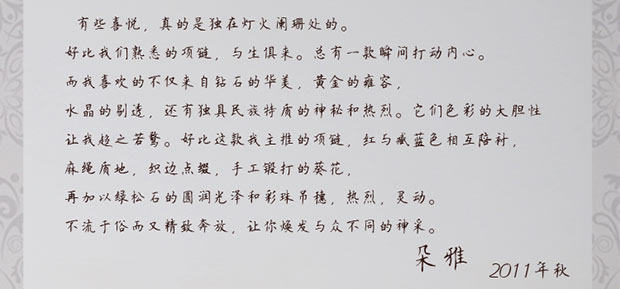 有些喜悦，真的是独在灯火阑珊处的。
好比我们熟悉的项链，与生俱来。总有一款瞬间打动内心。
而我喜欢的不仅来自钻石的华美，黄金的雍容，
水晶的剔透，还有独具民族特质的神秘和热烈。它们色彩的大胆性
让我趋之若鹜。好比这款我主推的项链，红与藏蓝色相互陪衬，
麻绳质地，织边点缀，手工锻打的葵花，
再加以绿松石的圆润光泽和彩珠吊穗，热烈，灵动。
不流于俗而又精致奔放，让你焕发与众不同的神采。
朵雅
2011年秋